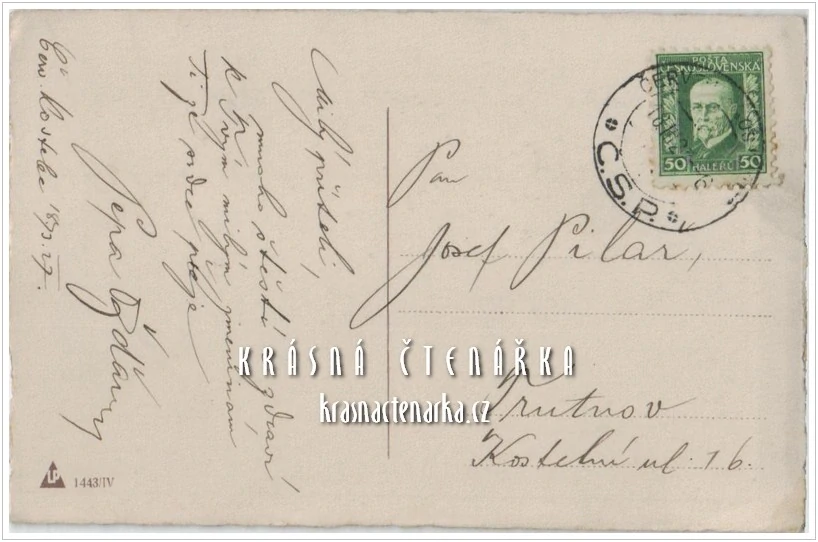 Čer. Kostelec 18/3. 27.
Milý příteli,
mnoho štěstí, zdraví
k Tvým milým jmeninám
Ti ze srdce přeje
Pepa
Pan
Josef Pilar,
Trutnov
Kostelní ul. 16.
POŠTA
ČESKOSLOVENSKA
50 HALÉŘŮ 50
Č.S.P.
KRÁSNÁ ČTENÁŘKA
krasnactenarka.cz
LP
1443/IV